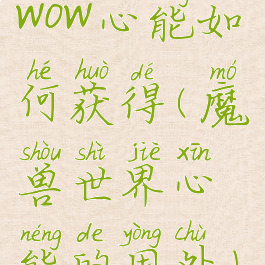 wow心能如
hé huò dé mó
何获得(魔
shòu shì jiè xīn
兽世界心
néng de yòng chù
能的用处)